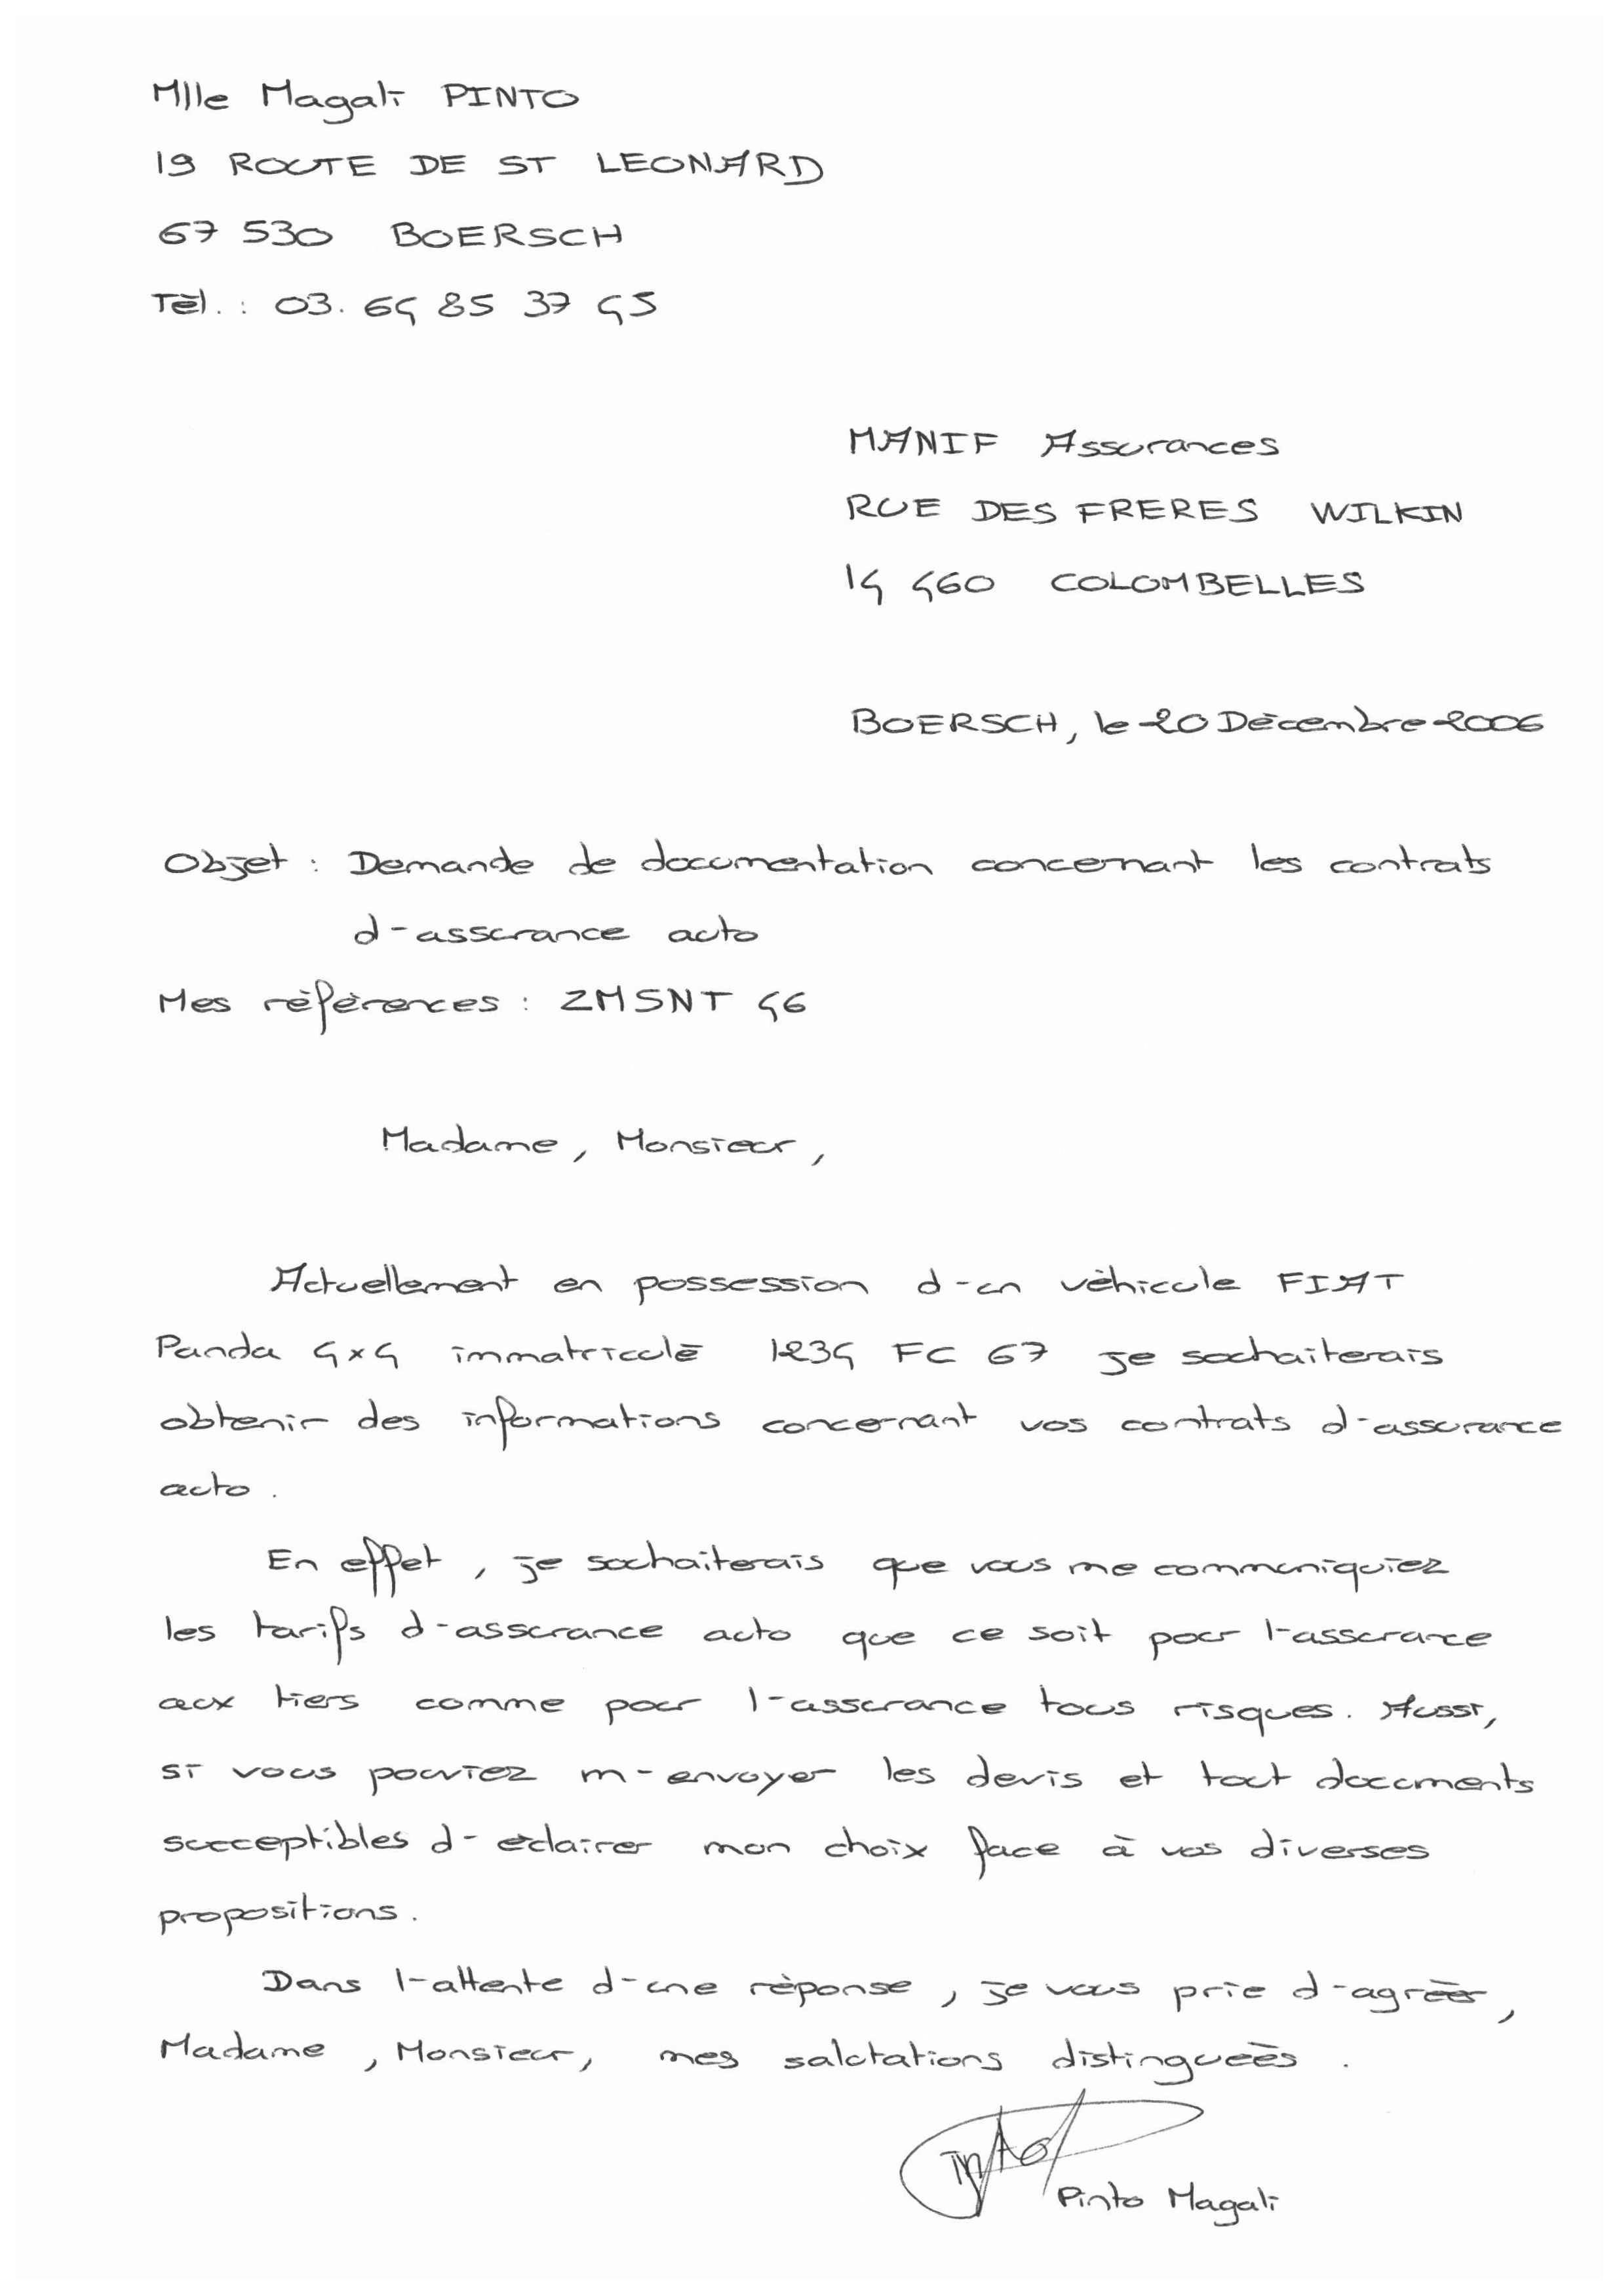 Mlle Magali PINTO
19 ROUTE DE ST LEONARD
67 530 BOERSCH
Tél. : 03. 64 85 37 45
MANIF Assurances
RUE DES FRERES WILKIN
14 460 COLOMBELLES
BOERSCH, le 20 Décembre 2006
Objet : Demande de documentation concernant les contrats
d'assurance auto
Mes références : ZMSNT 46
Madame, Monsieur,
Actuellement en possession d'un véhicule FIAT
Panda 4x4 immatriculé 1234 FC 67 je souhaiterais
obtenir des informations concernant vos contrats d'assurance
auto.
En effet, je souhaiterais que vous me communiquiez
les tarifs d'assurance auto que ce soit pour l'assurance
aux tiers comme pour l'assurance tous risques. Aussi,
si vous pouviez m'envoyer les devis et tout documents
succeptibles d'éclairer mon choix face à vos diverses
propositions.
Dans l'attente d'une réponse, je vous prie d'agréer,
Madame, Monsieur, mes salutations distinguées.
Pinto Magali